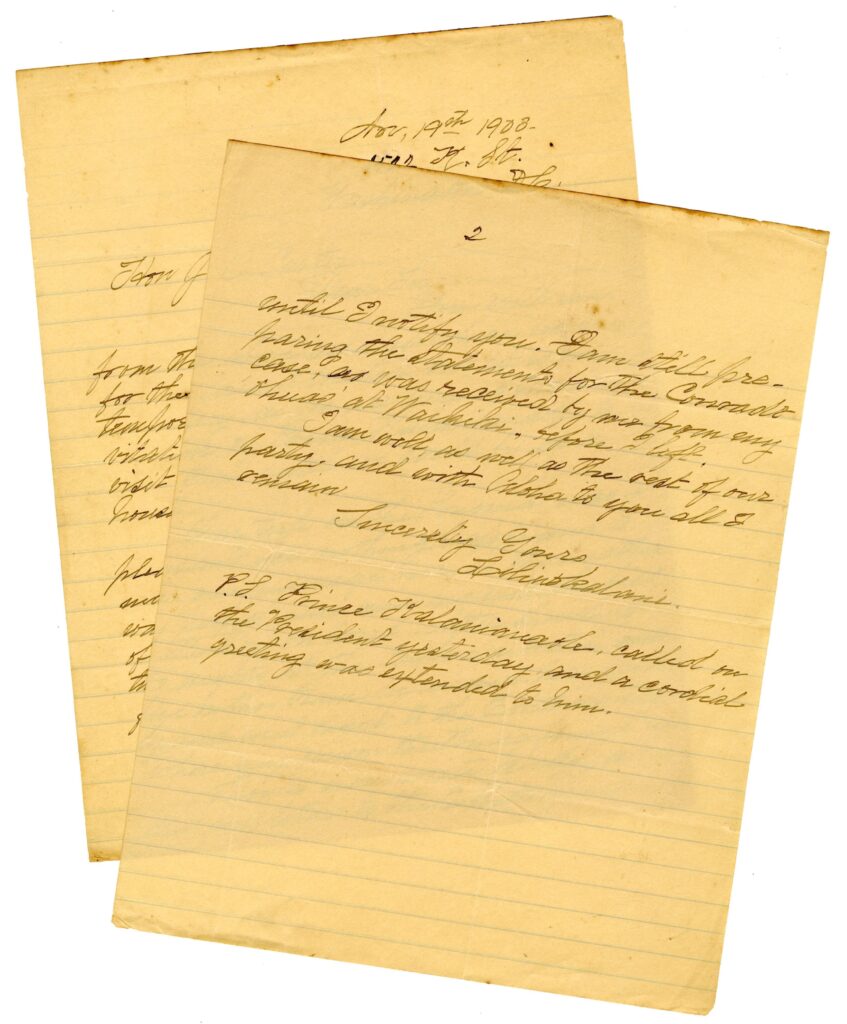 Nov, 19th 1903.
K. St.
Hon J
from th
for the
tempor
vitati
visit
house
plea
me
wa
of
th
2
until I notify you. I am still pre-
paring the statements for the Conradt
case, as was received by me from my
at Waikiki, before I left.
I am well, as well as the rest of our
party, and with Aloha to you all I
remain
Sincerely Yours
Liliuokalani.
P.S. Prince Kalanianaole, called on
the President yesterday, and a cordial
greeting was extended to him.